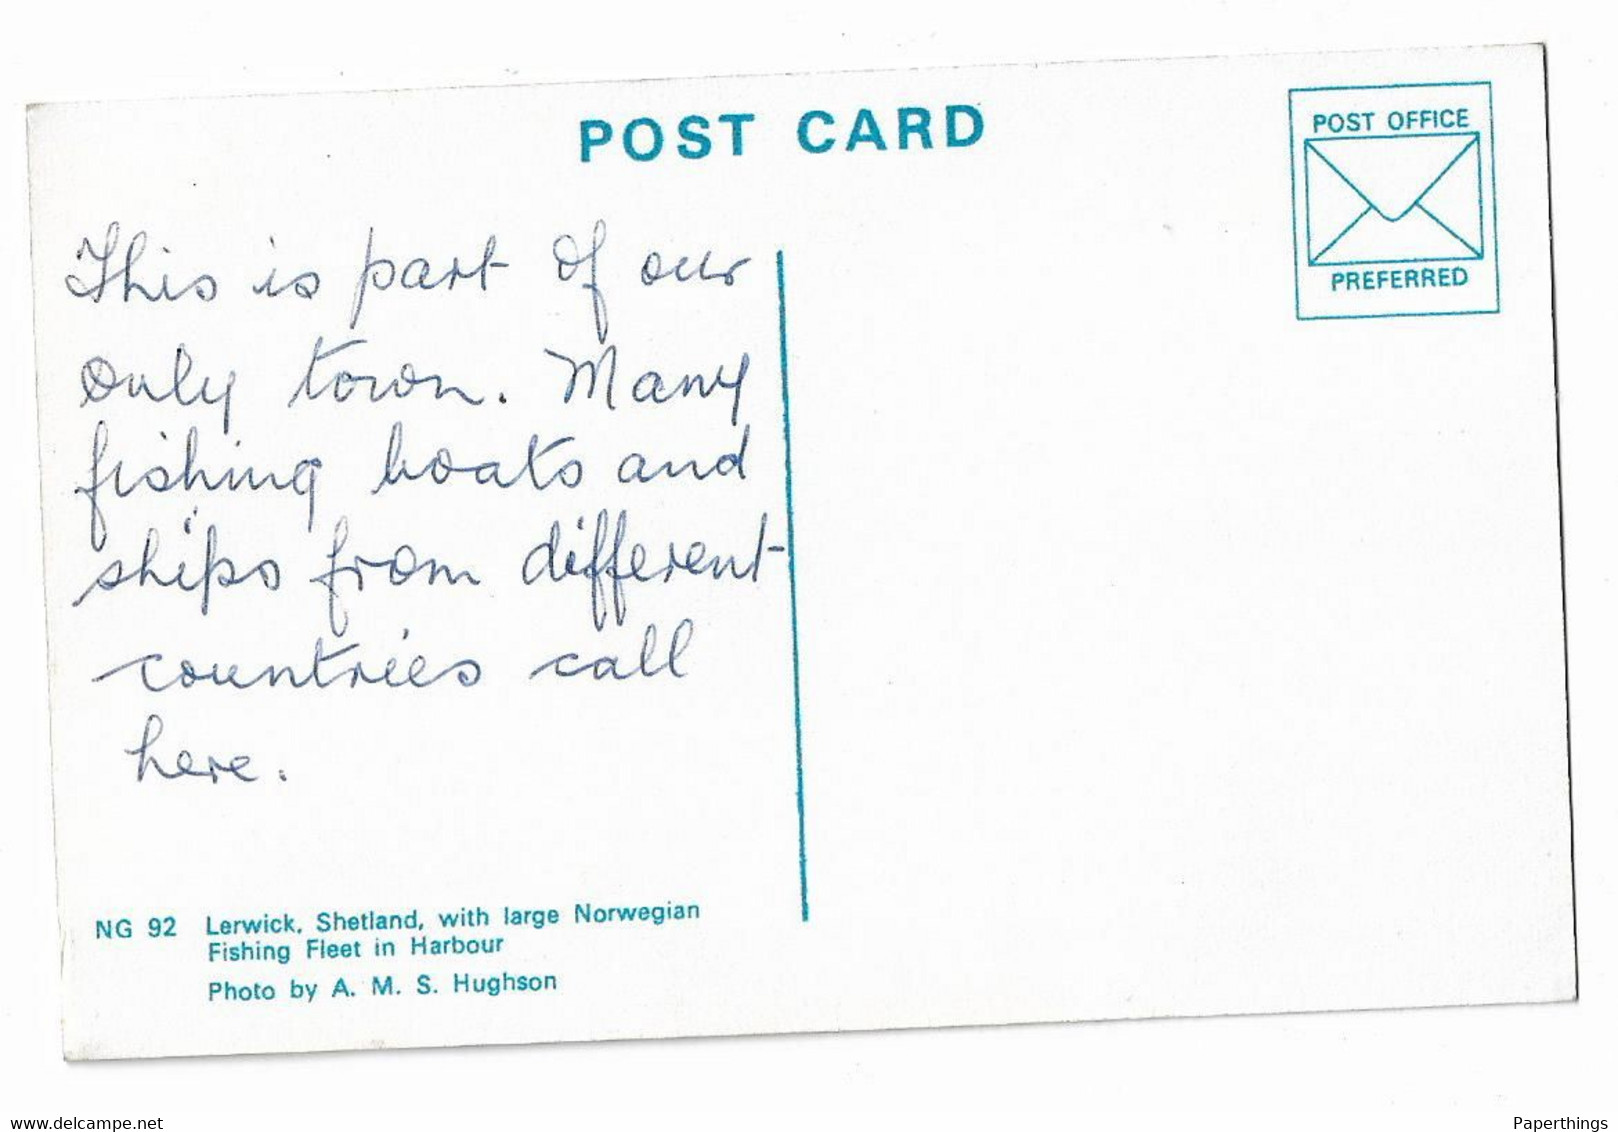 POST CARD
POST OFFICE
PREFERRED
This is part of our
only town. Many
fishing boats and
ships from different
countries call
here.
NG 92 Lerwick, Shetland, with large Norwegian
Fishing Fleet in Harbour
Photo by A. M. S. Hughson
www.delcampe.net
Paperthings